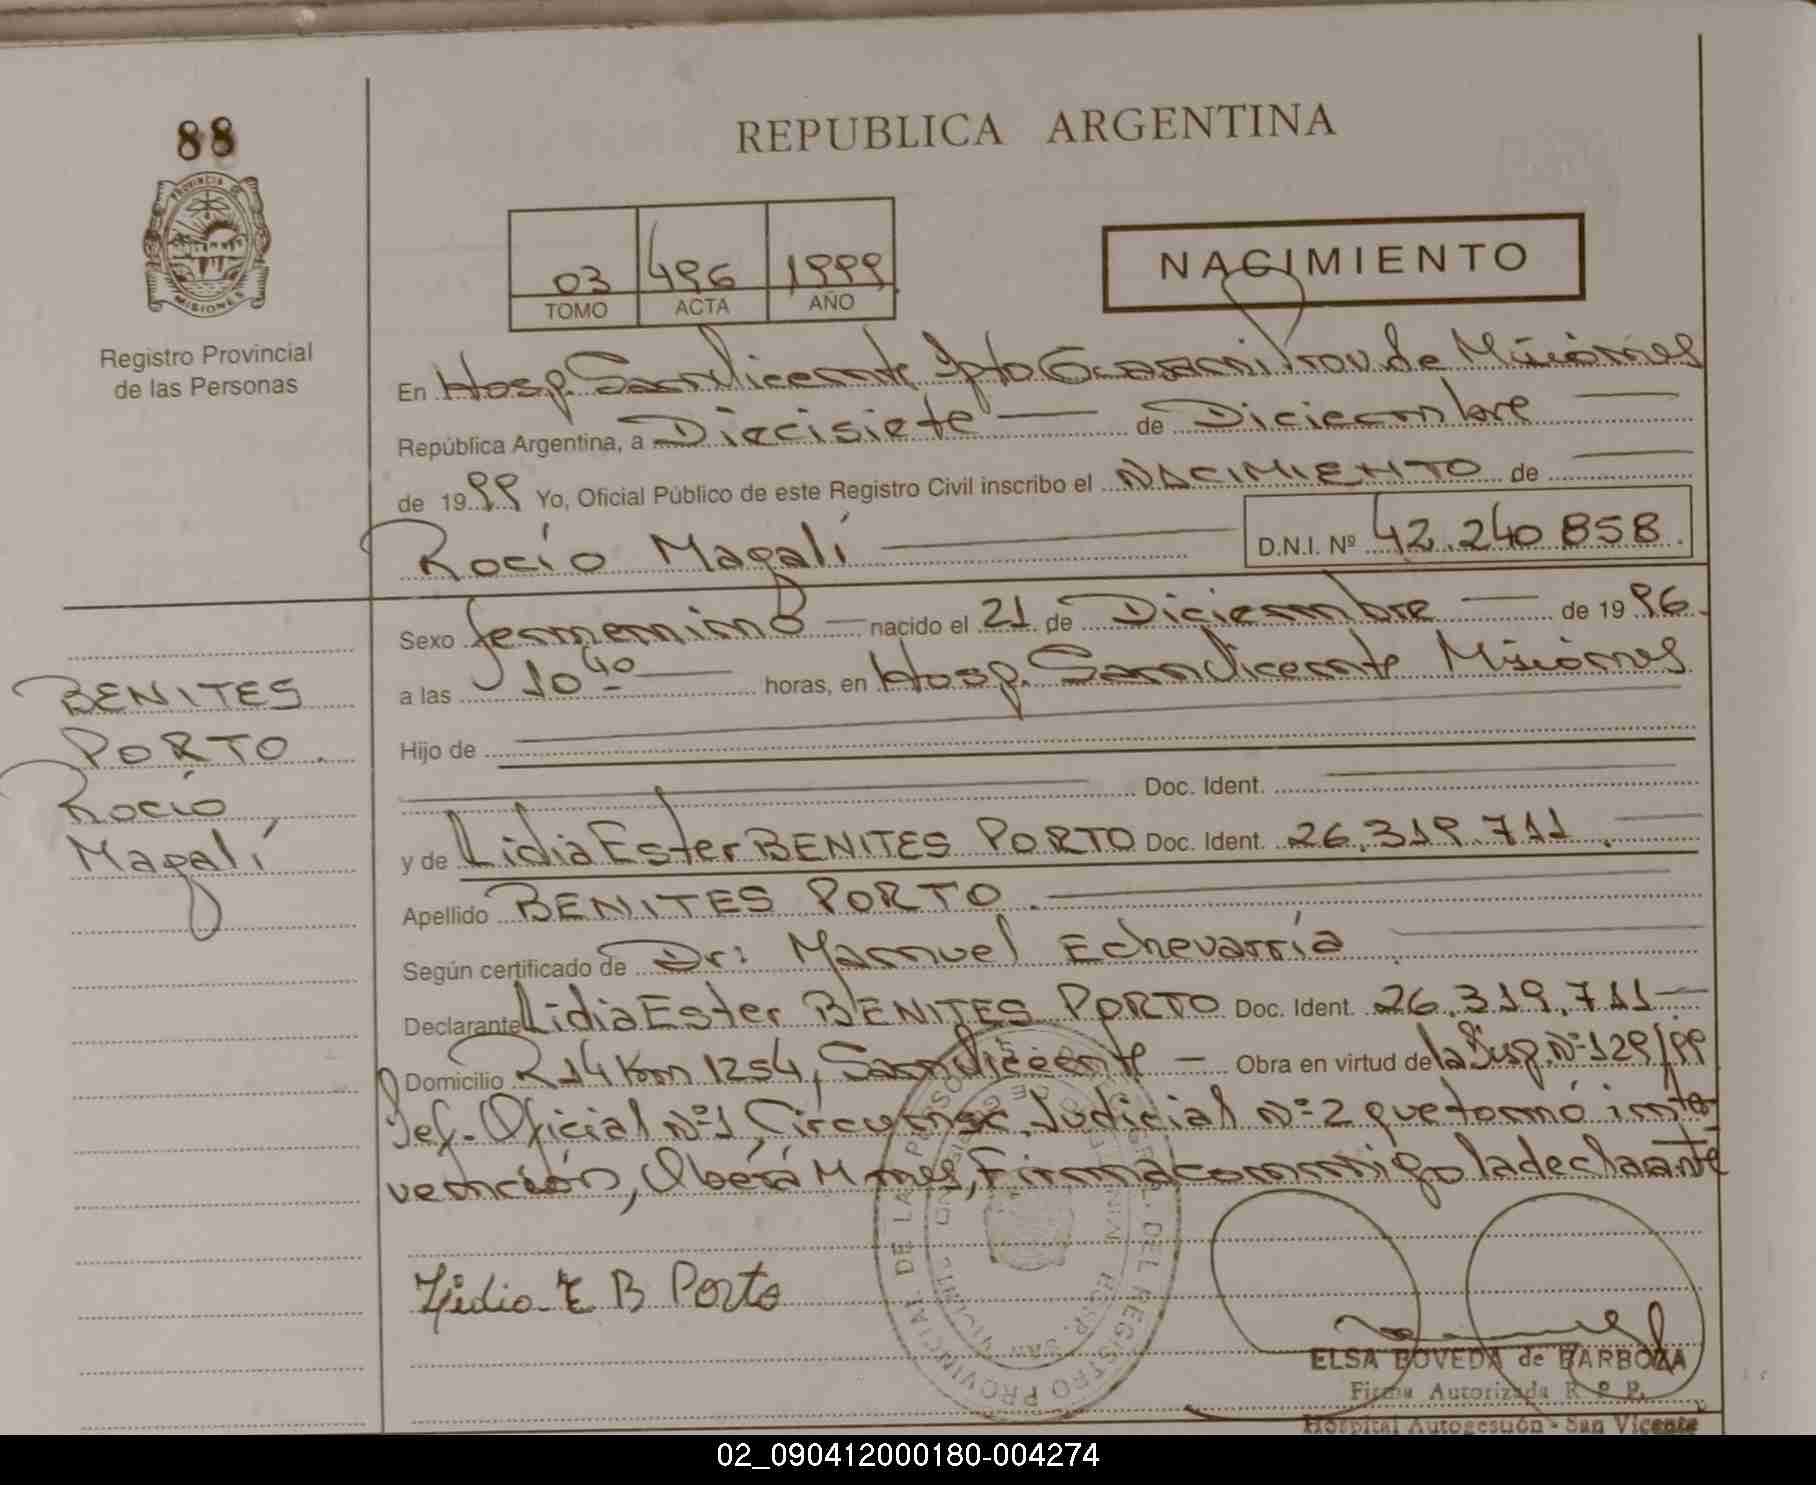 88
REPUBLICA ARGENTINA
PROVINCIA DE
MISIONES
Registro Provincial
de las Personas
03 496 1999
TOMO ACTA AÑO
NACIMIENTO
En Hosp. San Vicente Dpto Guaraní Prov. de Misiones
República Argentina, a Diecisiete de Diciembre
de 1999 Yo, Oficial Público de este Registro Civil inscribo el NACIMIENTO de
Rocío Magalí D.N.I. Nº 42.240.858.
Sexo femenino nacido el 21 de Diciembre de 1996.
a las 10 40 horas, en Hosp. San Vicente Misiones
Hijo de
Doc. Ident.
y de Lidia Ester BENITES PORTO Doc. Ident. 26.319.711.
Apellido BENITES PORTO.
Según certificado de Dr: Manuel Echevarría
Declarante Lidia Ester BENITES PORTO Doc. Ident. 26.319.711
Domicilio R 14 Km 1254, San Vicente Obra en virtud de la Disp. Nº 129/99
Def. Oficial Nº 1, Circunsc. Judicial Nº 2 que tomó inter
vención, Oberá Mnes, Firma conmigo la declaante
BENITES
PORTO.
Rocío,
Magalí
Lidia E B Porto
REGISTRO PROVINCIAL DE LAS PERSONAS
HOSP. SAN VICENTE
ELSA BOVEDA de BARBOZA
Firma Autorizada R. P. P.
Hospital Autogestión - San Vicente
02_090412000180-004274